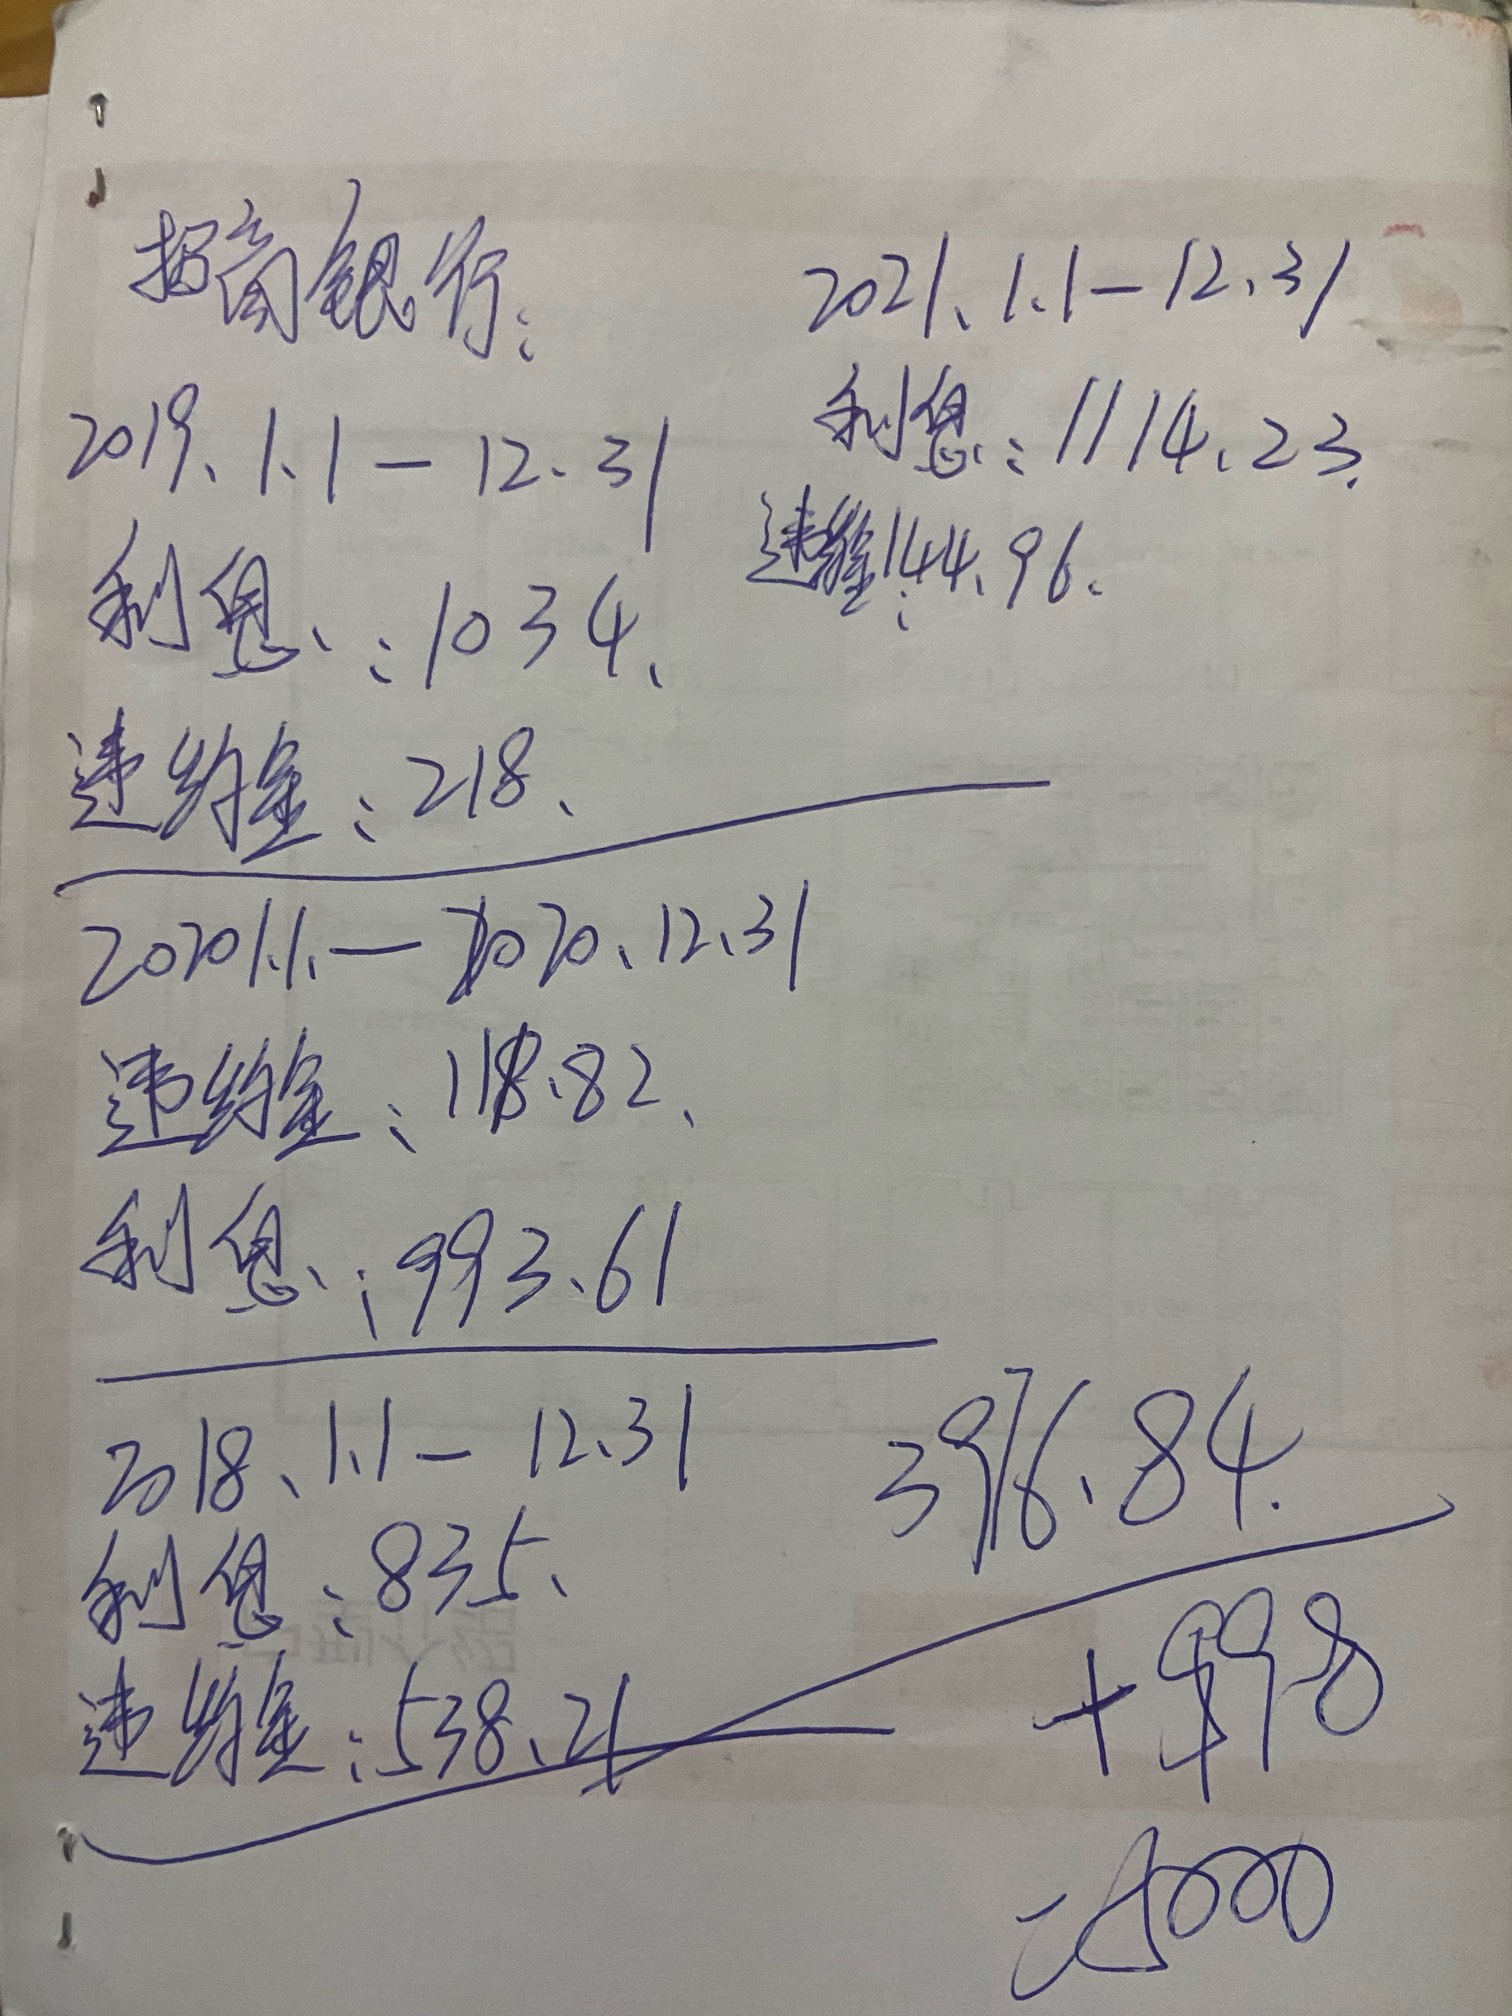 招商银行:
2019.1.1—12.31
利息:1034.
违约金:218.
2020.1.1.—2020.12.31
违约金:118.82.
利息:993.61
2018.1.1—12.31
利息:835.
违约金:538.21
2021.1.1—12.31
利息:1114.23.
违约金:144.96.
3976.84.
+998
=5000